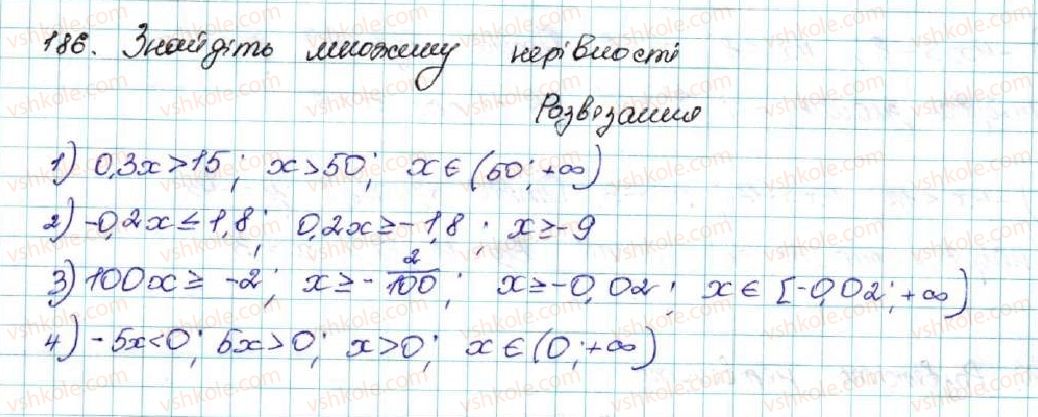 186. Знайдіть множину нерівності
Розв'язання
1) 0,3x>15; x>50; x∈(50;+∞)
2) -0,2x≤1,8; 0,2x≥-1,8; x≥-9
3) 100x≥-2; x≥-2/100; x≥-0,02; x∈[-0,02;+∞)
4) -5x<0; 5x>0; x>0; x∈(0;+∞)